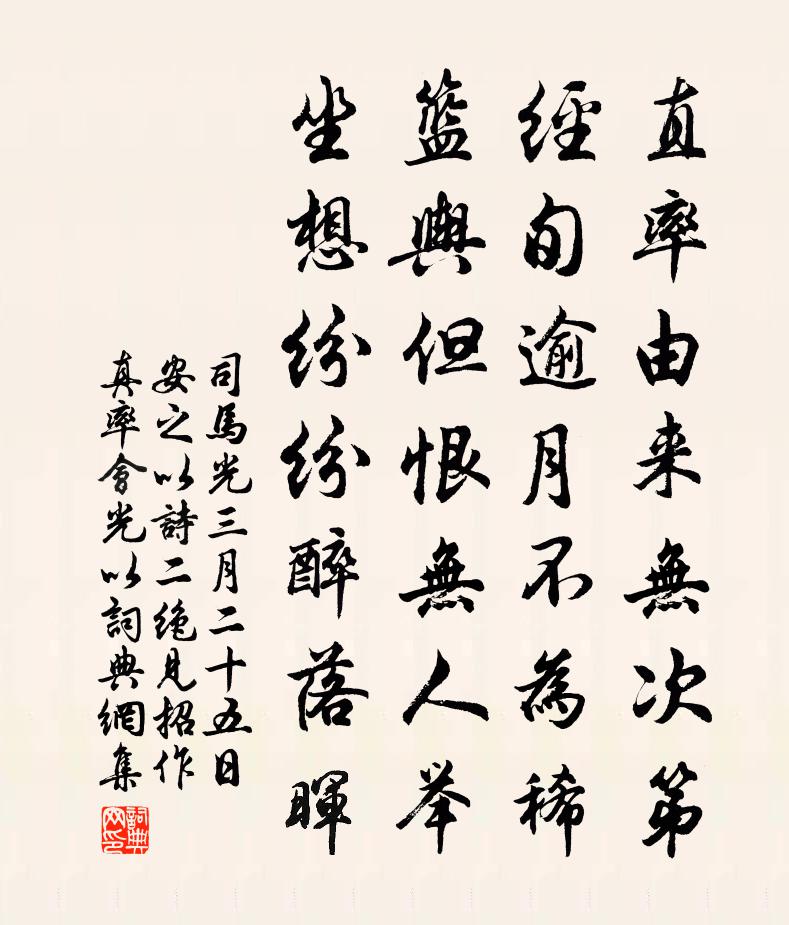 直率由来無次第
經旬逾月不為稀
籃輿但恨無人举
坐想紛紛醉落暉
司馬光三月二十五日
安之以詩二絶見招作
真率會光以詞典網集
詞典網印